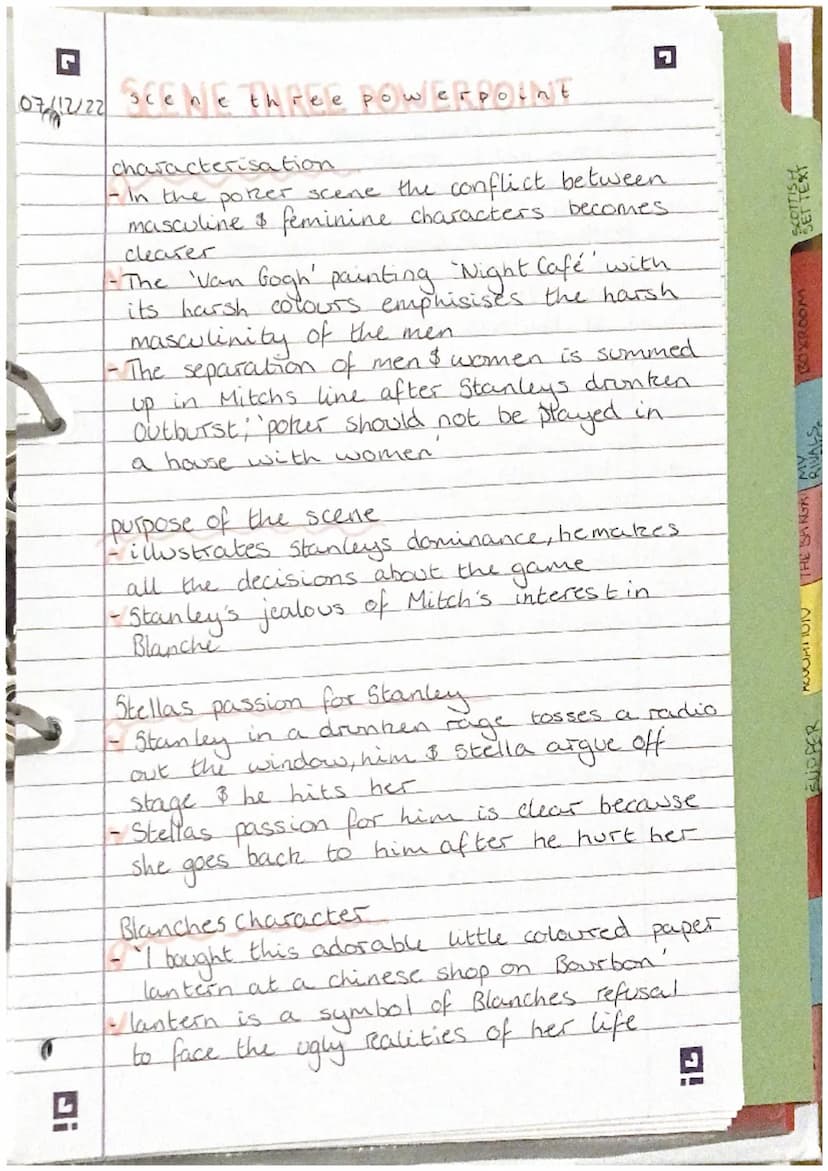 07/12/22
SCENE THREE POWERPOINT
scene three powerpoint
characterisation
- In the poker scene the conflict between
masculine & feminine characters becomes
clearer
- The 'Van Gogh' painting 'Night Café' with
its harsh colours emphisises the harsh
masculinity of the men
- The separation of men & women is summed
up in Mitchs line after Stanleys drunken
outburst; 'poker should not be played in
a house with women'
purpose of the scene
- illustrates Stanleys dominance, he makes
all the decisions about the game
- Stanley's jealous of Mitch's interest in
Blanche
Stellas passion for Stanley
- Stanley in a drunken rage tosses a radio
out the window, him & Stella argue off
stage & he hits her
- Stellas passion for him is clear because
she goes back to him after he hurt her
Blanches character
- 'I bought this adorable little coloured paper
lantern at a chinese shop on Bourbon'
- lantern is a symbol of Blanches refusal
to face the ugly realities of her life
SCOTTISH
SET TEXT
BOXROOM
MY
RIVALS
THE BARGAIN
SUPPER